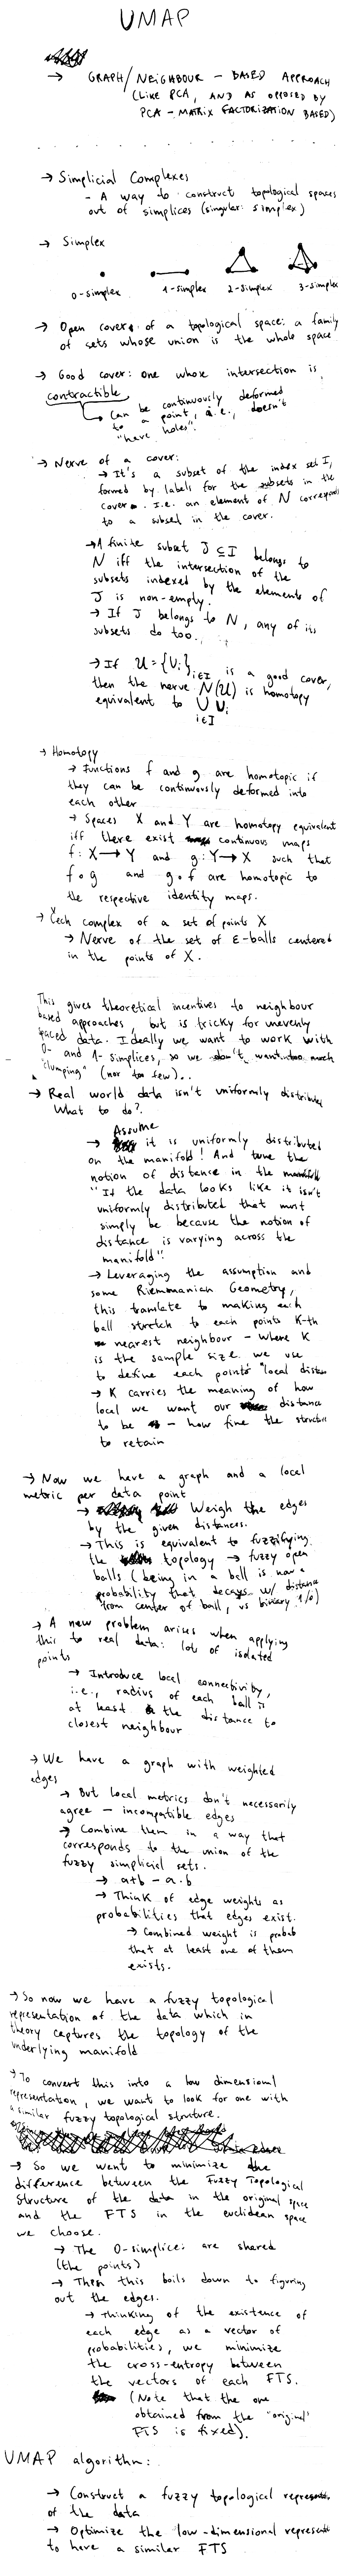 UMAP
→ GRAPH/NEIGHBOUR - BASED APPROACH
(LIKE PCA, AND AS OPPOSED BY
PCA - MATRIX FACTORIZATION BASED)
→ Simplicial Complexes
- A way to construct topological spaces
out of simplices (singular: simplex)
→ Simplex
0-simplex 1-simplex 2-simplex 3-simplex
→ Open cover of a topological space: a family
of sets whose union is the whole space
→ Good cover: one whose intersection is
contractible
↳ can be continuously deformed
to a point, i.e., doesn't
"have holes".
→ Nerve of a cover:
→ It's a subset of the index set I,
formed by labels for the subsets in the
cover. I.e. an element of N correspond
to a subset in the cover.
→ A finite subset J ⊆ I belongs to
N iff the intersection of the
subsets indexed by the elements of
J is non-empty.
→ If J belongs to N, any of its
subsets do too.
→ If U = {Ui}i∈I is a good cover,
then the nerve N(U) is homotopy
equivalent to ∪ Ui
i∈I
→ Homotopy
→ Functions f and g are homotopic if
they can be continuously deformed into
each other
→ Spaces X and Y are homotopy equivalent
iff there exist continuous maps
f: X → Y and g: Y → X such that
f∘g and g∘f are homotopic to
the respective identity maps.
→ Čech complex of a set of points X
→ Nerve of the set of ε-balls centered
in the points of X.
This gives theoretical incentives to neighbour
based approaches, but is tricky for unevenly
spaced data. Ideally we want to work with
0- and 1-simplices, so we don't want too much
"clumping" (nor too few)..
→ Real world data isn't uniformly distribute
What to do?
Assume
→ it is uniformly distributed
on the manifold! And tune the
notion of distance in the manifold
"If the data looks like it isn't
uniformly distributed that must
simply be because the notion of
distance is varying across the
manifold".
→ Leveraging the assumption and
some Riemannian Geometry,
this translate to making each
ball stretch to each points K-th
nearest neighbour - where K
is the sample size we use
to define each points "local distan
→ K carries the meaning of how
local we want our distance
to be - how fine the structure
to retain
→ Now we have a graph and a local
metric per data point
→ Weigh the edges
by the given distances.
→ This is equivalent to fuzzifying
the topology → fuzzy open
balls (being in a ball is now a
probability that decays w/ distance
from center of ball, vs binary 1/0)
→ A new problem arises when applying
this to real data: lots of isolated
points
→ Introduce local connectivity,
i.e., radius of each ball is
at least the distance to
closest neighbour
→ We have a graph with weighted
edges
→ But local metrics don't necessarily
agree - incompatible edges
→ Combine them in a way that
corresponds to the union of the
fuzzy simplicial sets.
→ a+b - a.b
→ Think of edge weights as
probabilities that edges exist.
→ Combined weight is probab
that at least one of them
exists.
→ So now we have a fuzzy topological
representation of the data which in
theory captures the topology of the
underlying manifold
→ To convert this into a low dimensional
representation, we want to look for one with
a similar fuzzy topological struture.
→ So we went to minimize the
difference between the Fuzzy Topological
Structure of the data in the original space
and the FTS in the euclidean space
we choose.
→ The 0-simplices are shared
(the points)
→ Then this boils down to figuring
out the edges.
→ Thinking of the existence of
each edge as a vector of
probabilities, we minimize
the cross-entropy between
the vectors of each FTS.
(Note that the one
obtained from the "original"
FTS is fixed).
UMAP algorithm:
→ Construct a fuzzy topological represent
of the data
→ Optimize the low-dimensional represent
to have a similar FTS